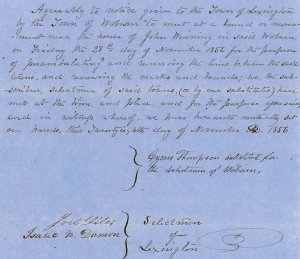 Agreeably to notice given to the Town of Lexington
by the Town of Woburn to meet at a bound or monu-
ment near the house of John Winning in said Woburn
on Friday the 28th day of November 1856 for the purpose
of perambulating and running the line between the said
towns, and renewing the marks and bounds; we, the sub-
scribers, selectmen of said towns (or by our substitutes) have
met at the time and place, and for the purpose
and in witness whereof, we have hereunto mutually set
our hands, this twenty day of November 1856
Cyrus Thompson substitute for
the Selectmen of Woburn.
Joel Viles
Isaac N. Damon
Selectmen
of
Lexington